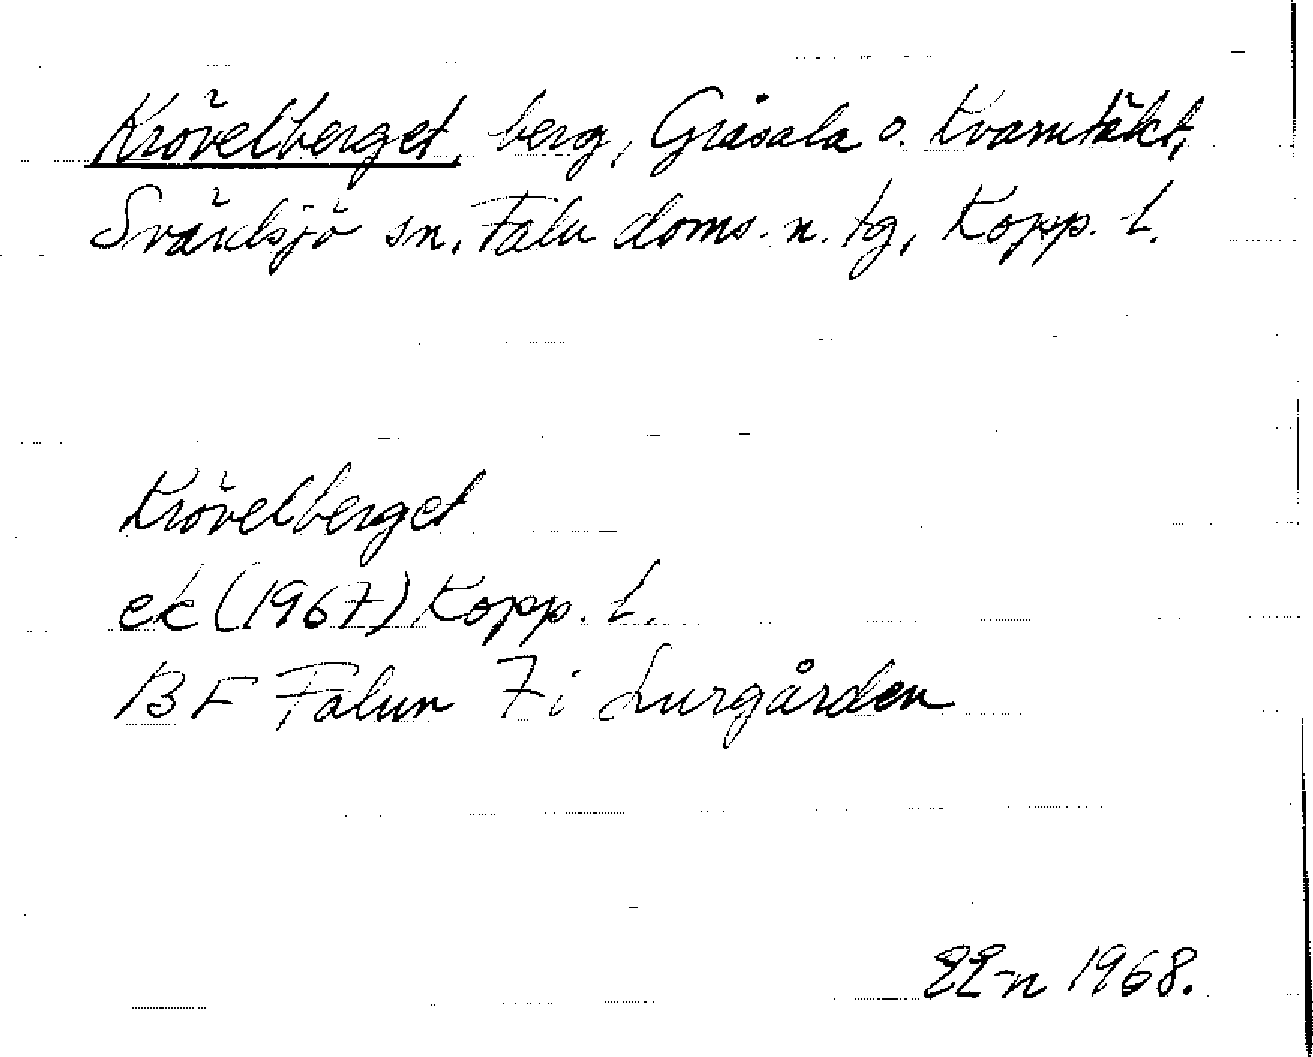 Krövelberget, berg, Gråsala o. Kvarntäkt,
Svärdsjö sn. Falu doms. n. tg, Kopp. L.
Krövelberget
ek (1967) Kopp. L.
BF Falun 7i Lurgården
EE-n 1968.